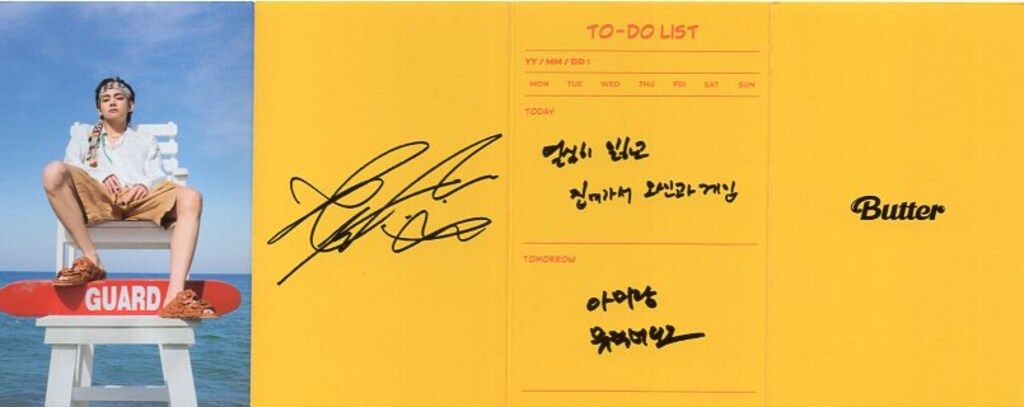 GUARD
TO-DO LIST
YY / MM / DD :
MON TUE WED THU FRI SAT SUN
TODAY
열심히 일하고
집에가서 와인과 게임
TOMORROW
Butter